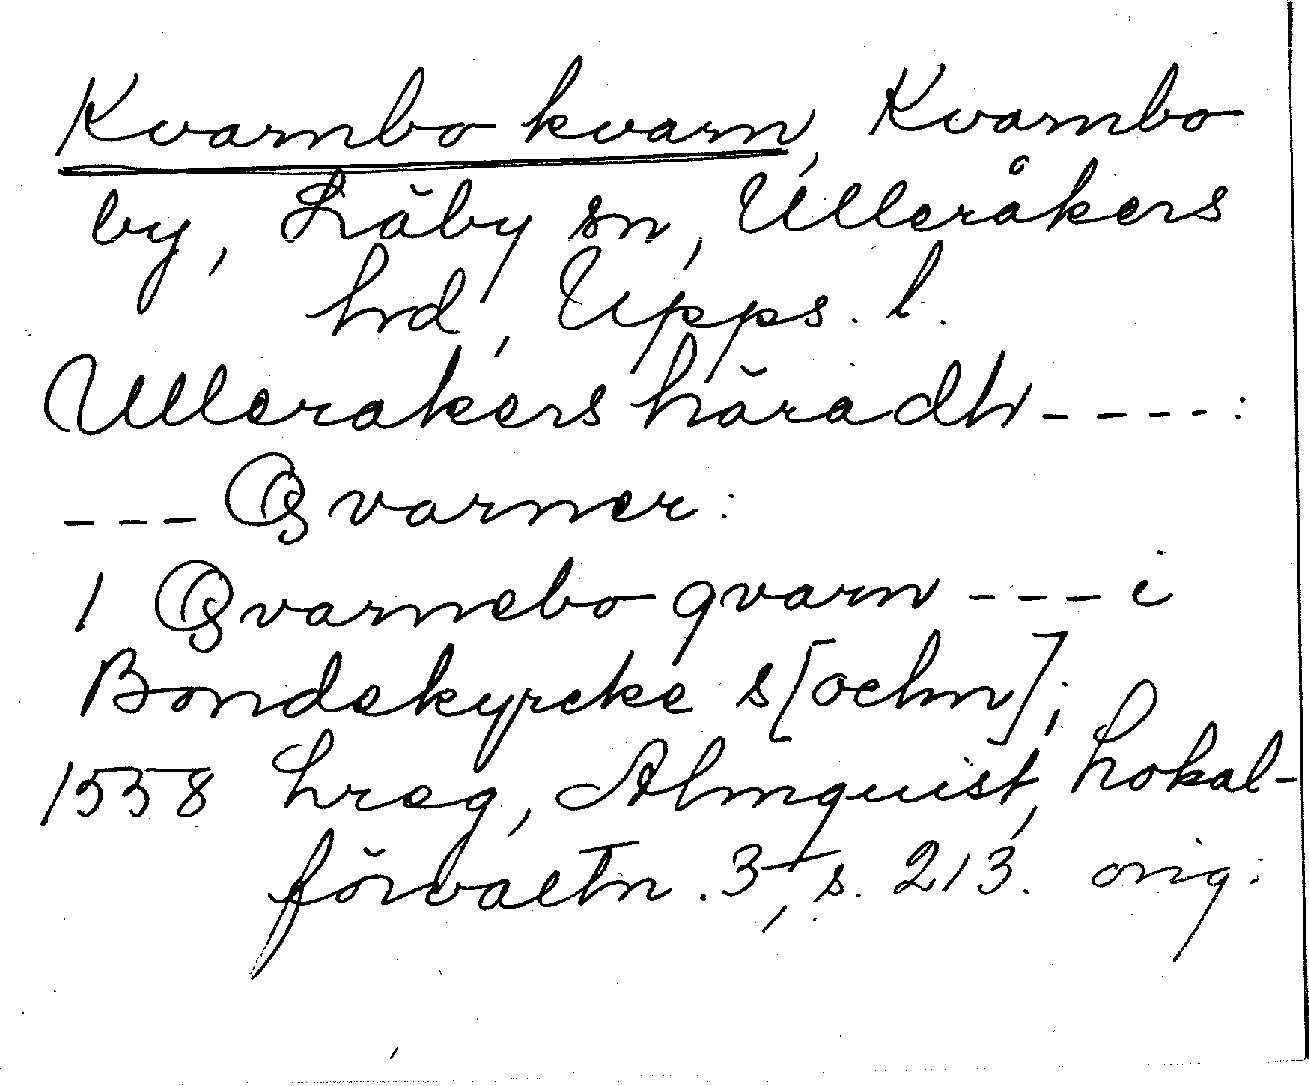 Kvarnbo kvarn, Kvarnbo
by, Läby sn, Ulleråkers
hrd, Upps. l.
Ullerakers häradh ----:
--- Qvarner:
1 Qvarnebo qvarn --- i
Bondekyrcke s[ochn];
1558 Lreg, Almquist, Lokal-
förvaltn. 3, s. 213. orig.